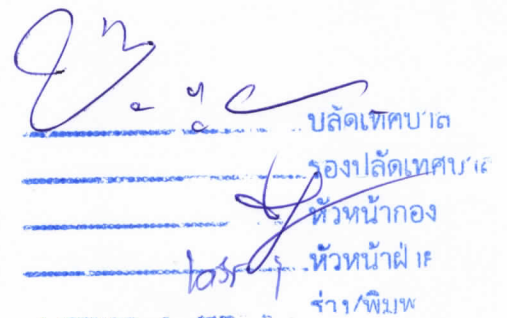 ปลัดเทศบาล
รองปลัดเทศบาล
หัวหน้ากอง
หัวหน้าฝ่าย
ร่าง/พิมพ์